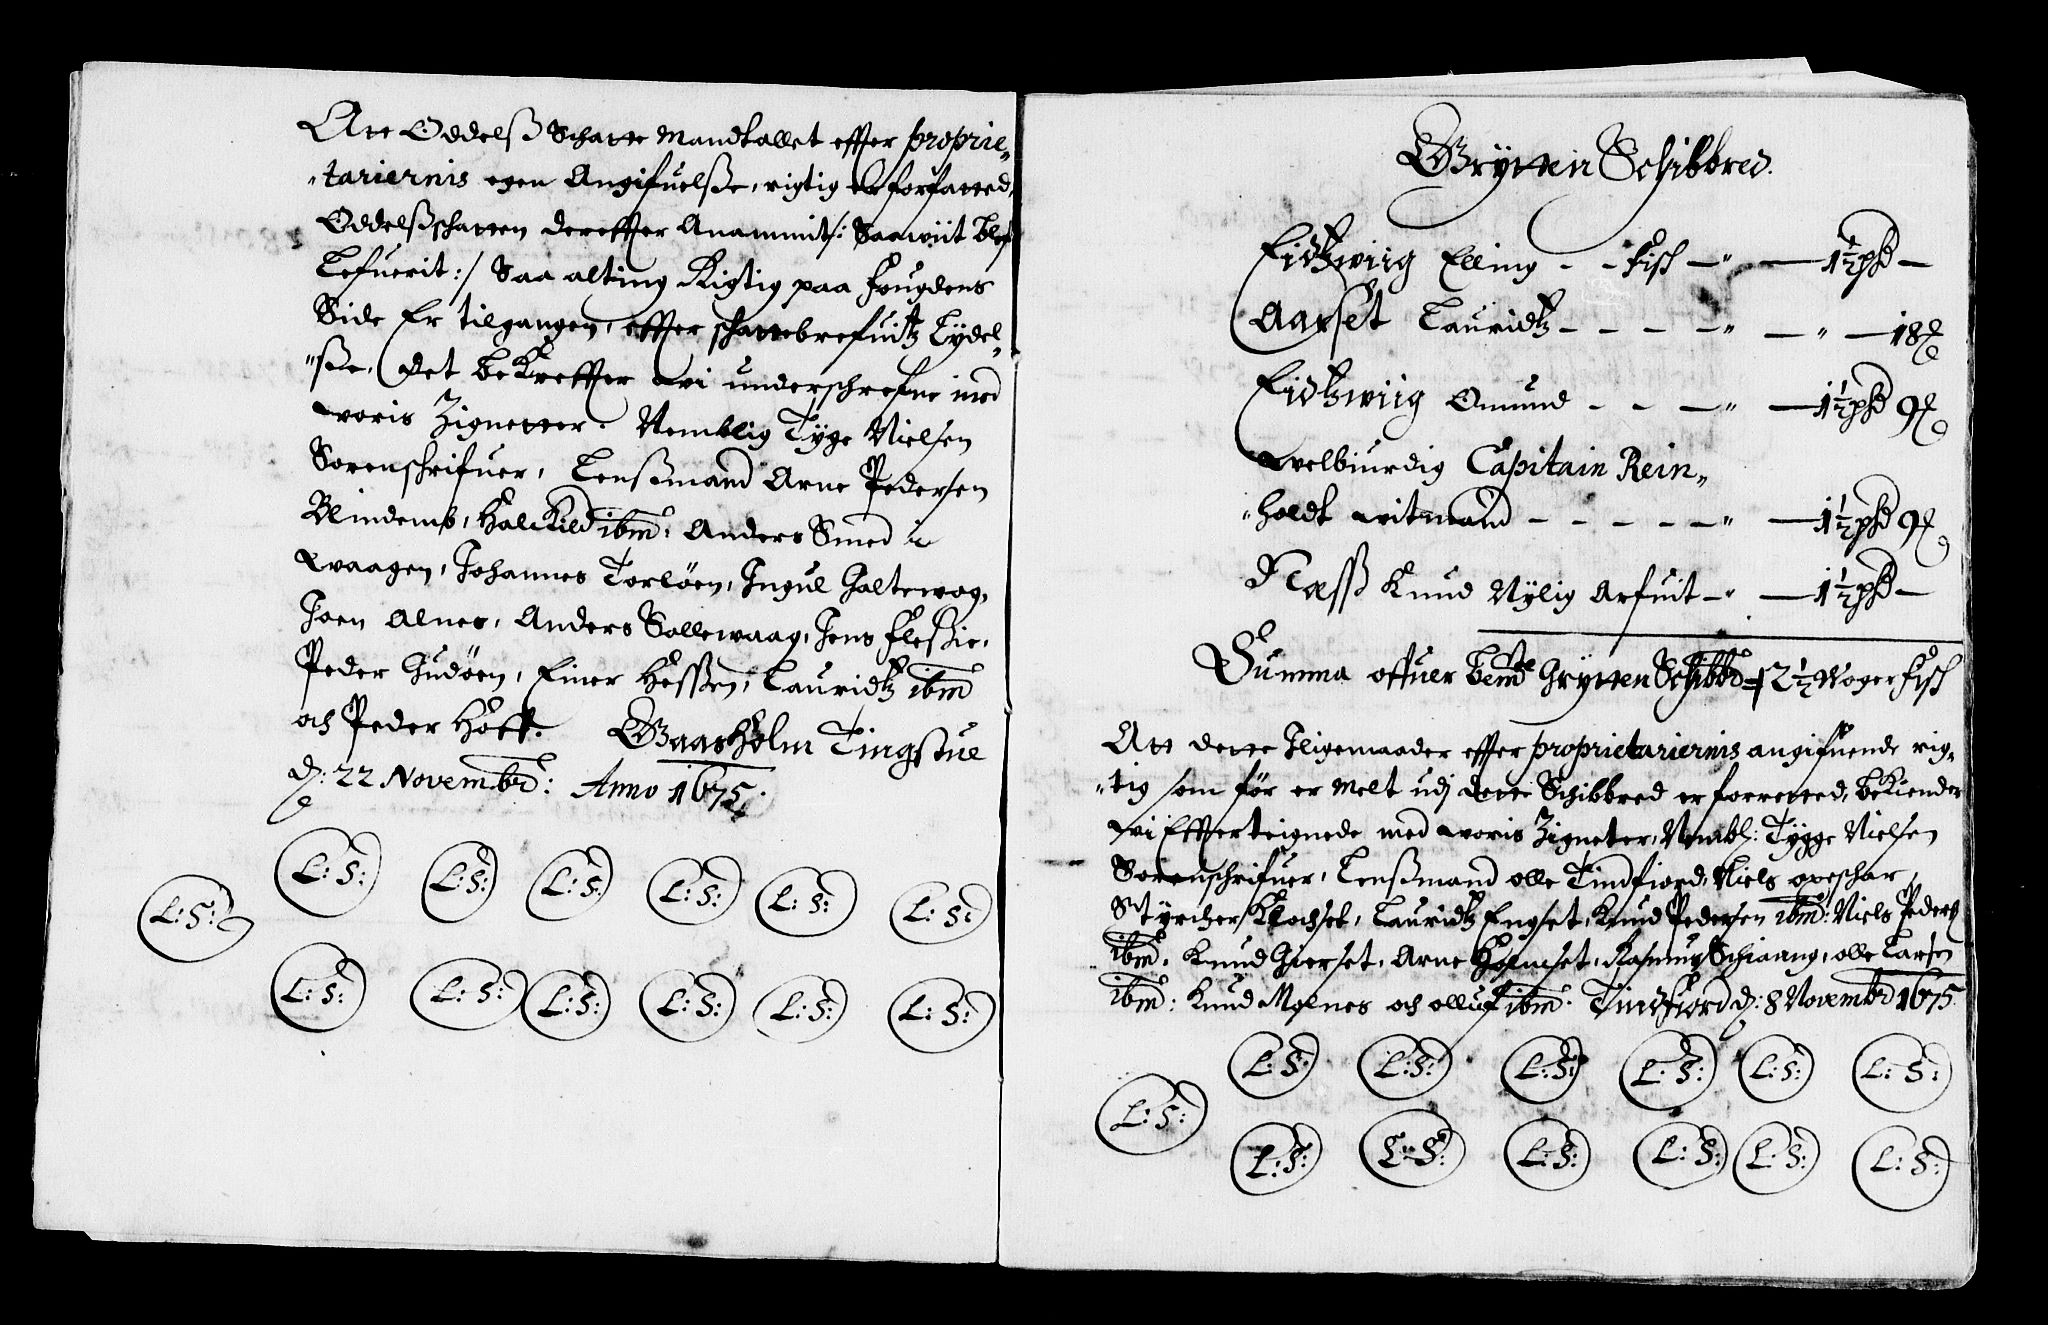 Att Oddelsß Schatte Mandtallet effter proprie„
„tariernis egen Angifuelsße, rigtig er forfatted,
Oddelsßschatten dereffter Anammit/: Saawiit blef
Lefuerit:/ Saa alting Rigtig paa fougdens
Side Er tilgangen, effter schattebrefuitz Lydel„
„ße, Det bekreffter wi underschrefne med
woris Zignetter. Nemblig Tyge Nielsen
Sorenschrifuer, Lensßmand Arne Pedersen
Blindemb, Halckild ibm: Anders Smed i
Waagen, Johannes Torløen, Ingul Galtewog,
Joen Alnes, Anders Sollewaag, Jens Fleßie,
Peder Gudøen, Einer Heßen, Lauridtz ibm
och Peder Hoff. Gaasholm Tingstue
d: 22 Novembr: Anno 1675.
L: S: L: S: L: S: L: S: L: S: L: S:
L: S:
L: S: L: S: L: S: L: S: L: S: L: S:
Grytten Schibbred.
Eidtzwiig Elling - - Fisch - " - 1½ pd -
Aarset Lauridtz - - - - " - " - 18
Eidtzwiig Omund - - - " - 1½ pd 9
Welbiurdig Capitain Rein„
„holdt Witmand - - - - - " - 1½ pd 9
Næsß Knud Nylig Arfuit - " - 1½ pd -
Summa offuer bemte Grytten Schibbr = 2½ Woger Fisch
Att dette Iligemaader effter proprietariernis angifuende rig„
„tig som før er Melt udj dette Schibbred er forretted, bekiender
wi Effterteignede med woris Zigneter, Nembl: Tygge Nielsen
Sorenschrifuer, Lensßmand olle Tindfiord, Niels
Styrcher Lauridtz Engset, Knud Pedersen ibm: Niels Peders
ibm, Knud Gierset, Arne Holmset, Rasmus Schiaang, olle Larsen
ibm: Knud Molnes och olluf ibm. Tindfiord d: 8 Novembr 1675
L: S: L: S: L: S: L: S: L: S: L: S:
L: S:
L: S: L: S: L: S: L: S: L: S: L: S: